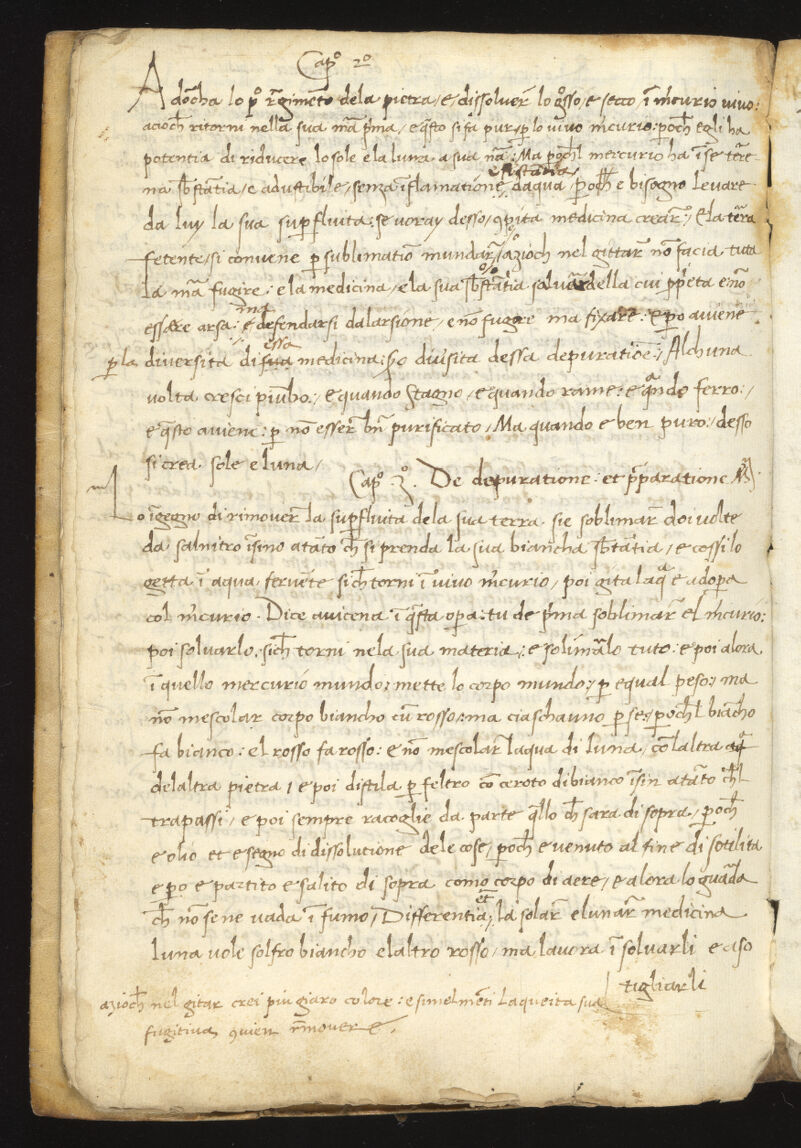 Cap° 2°
Adoncha lo p° rẽgimẽto dela pietra / e dissolverˉ lo g°sso, e secco ĩ mˉcurio vivo:
acioch̃ ritorni nella sua mãa p̃ma, e q̃sto si fa pur, p lo vivo mˉcurio: poch̃ egli ha
potentia di riducere lo sole e la luna a sua nãa: Ma poch̃l mercurio ha ĩ se terre-
na sb̃stãtia, e adustibile, senza ĩflamatione daqua, poch̃ e bisogno levare
esistãtia
da luy la sua supfluvita: se voray desso, 9pita medicina crearˉ, / Ela terˉa
fetente, si convene p sublimatiõ mundarˉ, azioch̃ nel gittarˉ nõ facia tuta
la mãa fugire: e la medicina, e la sua sb̃stãtia solvãr della cui pp̃eta e nõ
essere arsa: e defendarsi dalarsione, e nõ fugere ma fixare: e po aviene
ma
p la diversita di sua medicina; divisita dessa depuratiõe: Alchuna
essa
volta cresci piũbo:, e quando stagno, e quando rame: e q̃ndo ferro:,
e q̃sto aviene: p nõ esserˉ bñ purificato, Ma quando e ben puro:, desso
si crea sole e luna,
Cap° 3°. De depuratione: et p̃paratione
Lo ĩgegno di rimoverˉ la supfluvita dela sua terra sie soblimarˉ doi volte
da salnitro ĩsino atãto ch̃ si prenda la sua biancha sb̃tãtia, e cossi lo
getta ĩ aqua fervẽte sich̃ torni ĩ vivo mˉcurio, poi gita laq̃ e adopa
col mˉcurio. Dice avicena ĩ q̃sta opa: tu de p̃ma soblimarˉ el mˉcurio:
poi solvarlo, sich̃ torni nela sua materia: e solimãlo tuto: e poi alora
ĩ quello mercurio mundo: mette lo corpo mundo: p equal peso: ma
nõ mescolar corpo biancho cũ rosso: ma ciaschauno p se, poch̃l biãcho
fa bianco: el rosso fa rosso: e nõ mescolarˉ laqua di luna, cõ laltra aq̃
delaltra pietra, e poi distila p feltro cõ ceroto di bianco ĩsin atãto ch̃l
trapassi, e poi sempre racoglie da parte q̃llo ch̃ sara di sopra, poch̃
e olio et e segno di dissolutione dele cose, poch̃ e venuto al fine di sotilita
e po e partito e salito di sopra como corpo di aere, e alora lo guãda
ch̃ nõ se ne vada ĩ fumo, Differentia, la solarˉ e lunarˉ medicina
et
luna vole solfro biancho elaltro rosso, ma lavora ĩ solvarli e aso
tigliarli
azioch̃ nel gitar crei piu giaro colore: e simelmẽti laqueita sua
fugitiva 9vien r̃mover